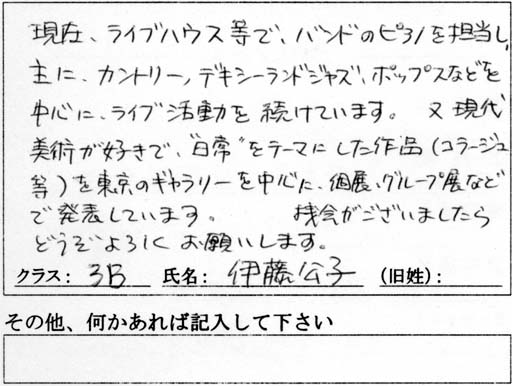 現在、ライブハウス等で、バンドのピアノを担当し、
主に、カントリー、デキシーランドジャズ、ポップスなどを
中心に、ライブ活動を続けています。 又現代
美術が好きで、"日常"をテーマにした作品(コラージュ
等)を東京のギャラリーを中心に、個展、グループ展など
で発表しています。 機会がございましたら
どうぞよろしくお願いします。
クラス: 3B 氏名: 伊藤公子 (旧姓):
その他、何かあれば記入して下さい